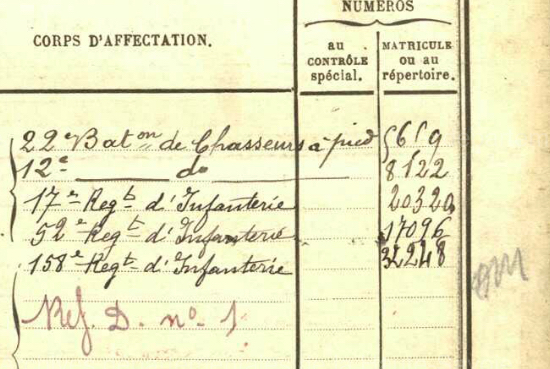 NUMÉROS
CORPS D'AFFECTATION.
au CONTRÔLE spécial.
MATRICULE ou au répertoire.
22e Baton de Chasseurs à pied 5619
12e do 8122
17e Regt d'Infanterie 20320
52e Regt d'Infanterie 17096
158e Regt d'Infanterie 32248
Ref. D. no. 1